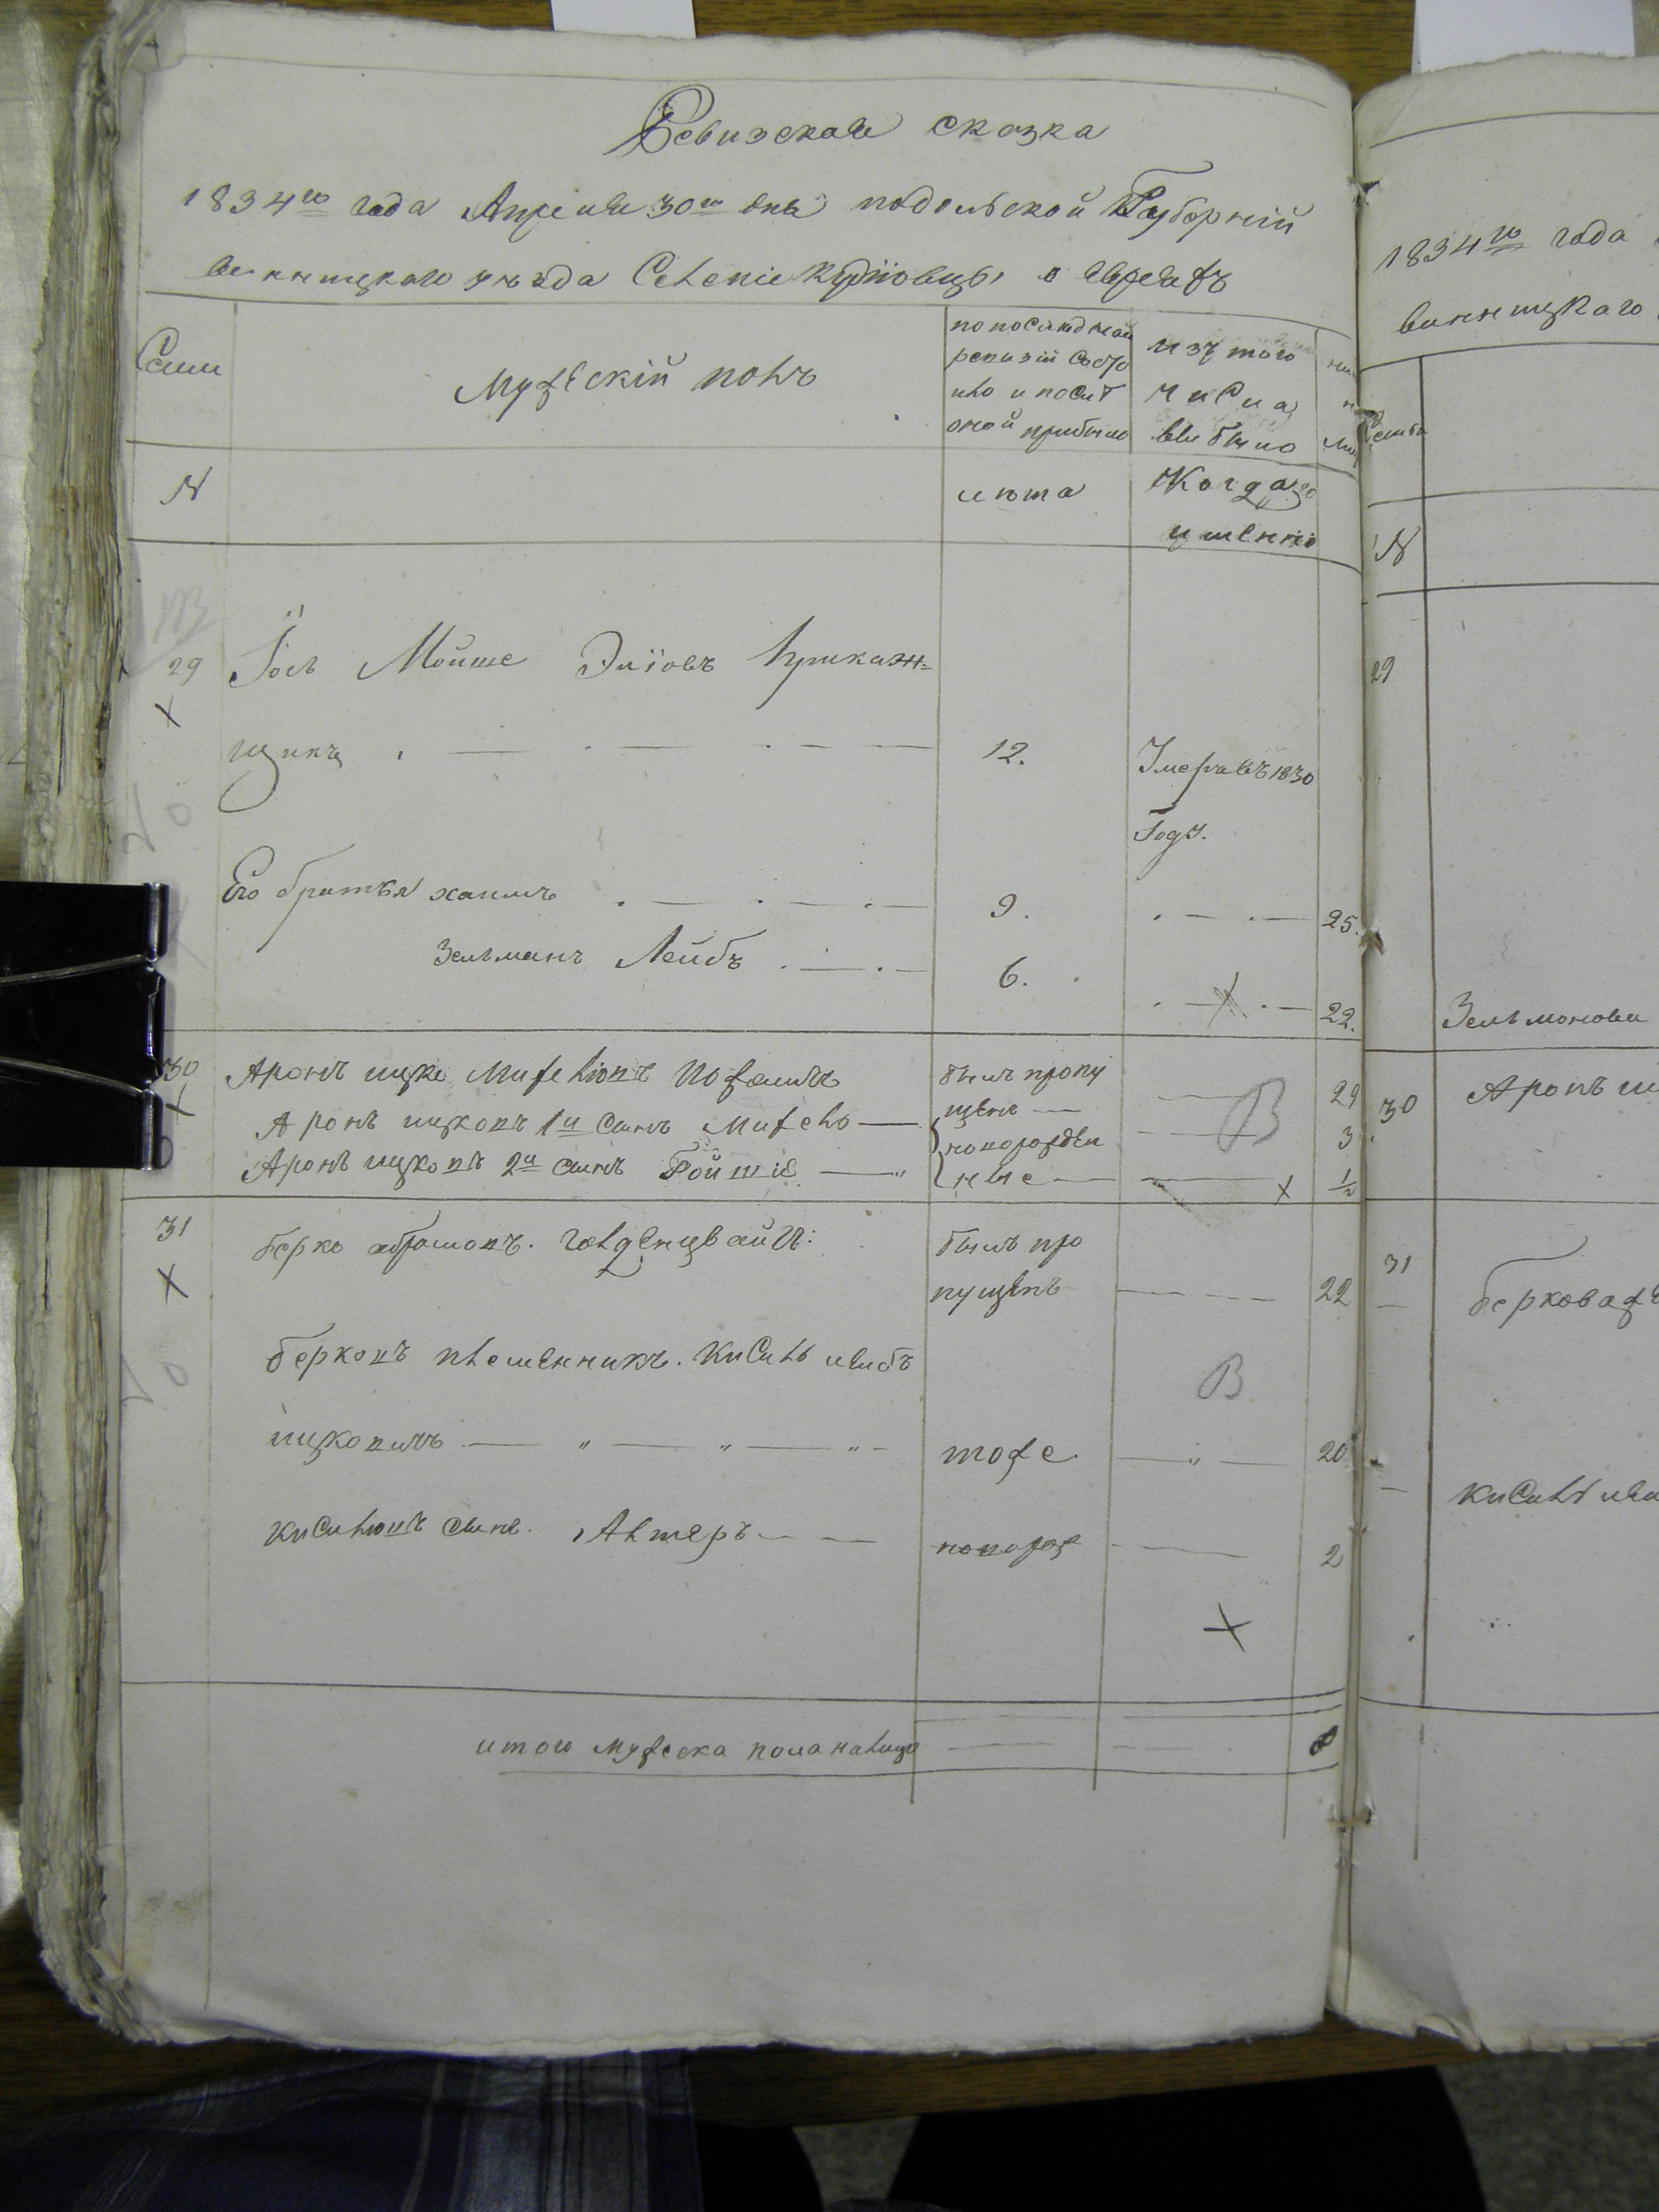 Ревизская сказка
1834го года Апреля 30го дня подольской Губерній
винницкаго уезда Селеніе Курїовцы о евреяхъ
Семи
Мужескій полъ
по последней
ревизіи состо
яло и после
оной прибыло
изъ того
числа
выбыло
N
лета
Когда
именно
29 Іось Мойше Эліовъ Прикаж-
щикъ 12. Умеръ въ 1830
Году.
Его братья хаимъ 9. 25.
Зельманъ Лейбъ 6. 22.
30 Аронъ ицко былъ пропу
щенъ 29
Аронъ ицковъ 1й сынъ новорожден 3
Аронъ ицковъ 2й сынъ ные ½
31 берко абрамовъ. был про
пущенъ 22
берковъ племенникъ. Кисиль лейбъ
ицковичъ тоже 20
Кисилювъ сынъ. Алтеръ новорож 2
итого мужеска пола налицо 8
1834го года
винницкаго
N
29
Зельманова
30 Аронъ
31
Кисиль